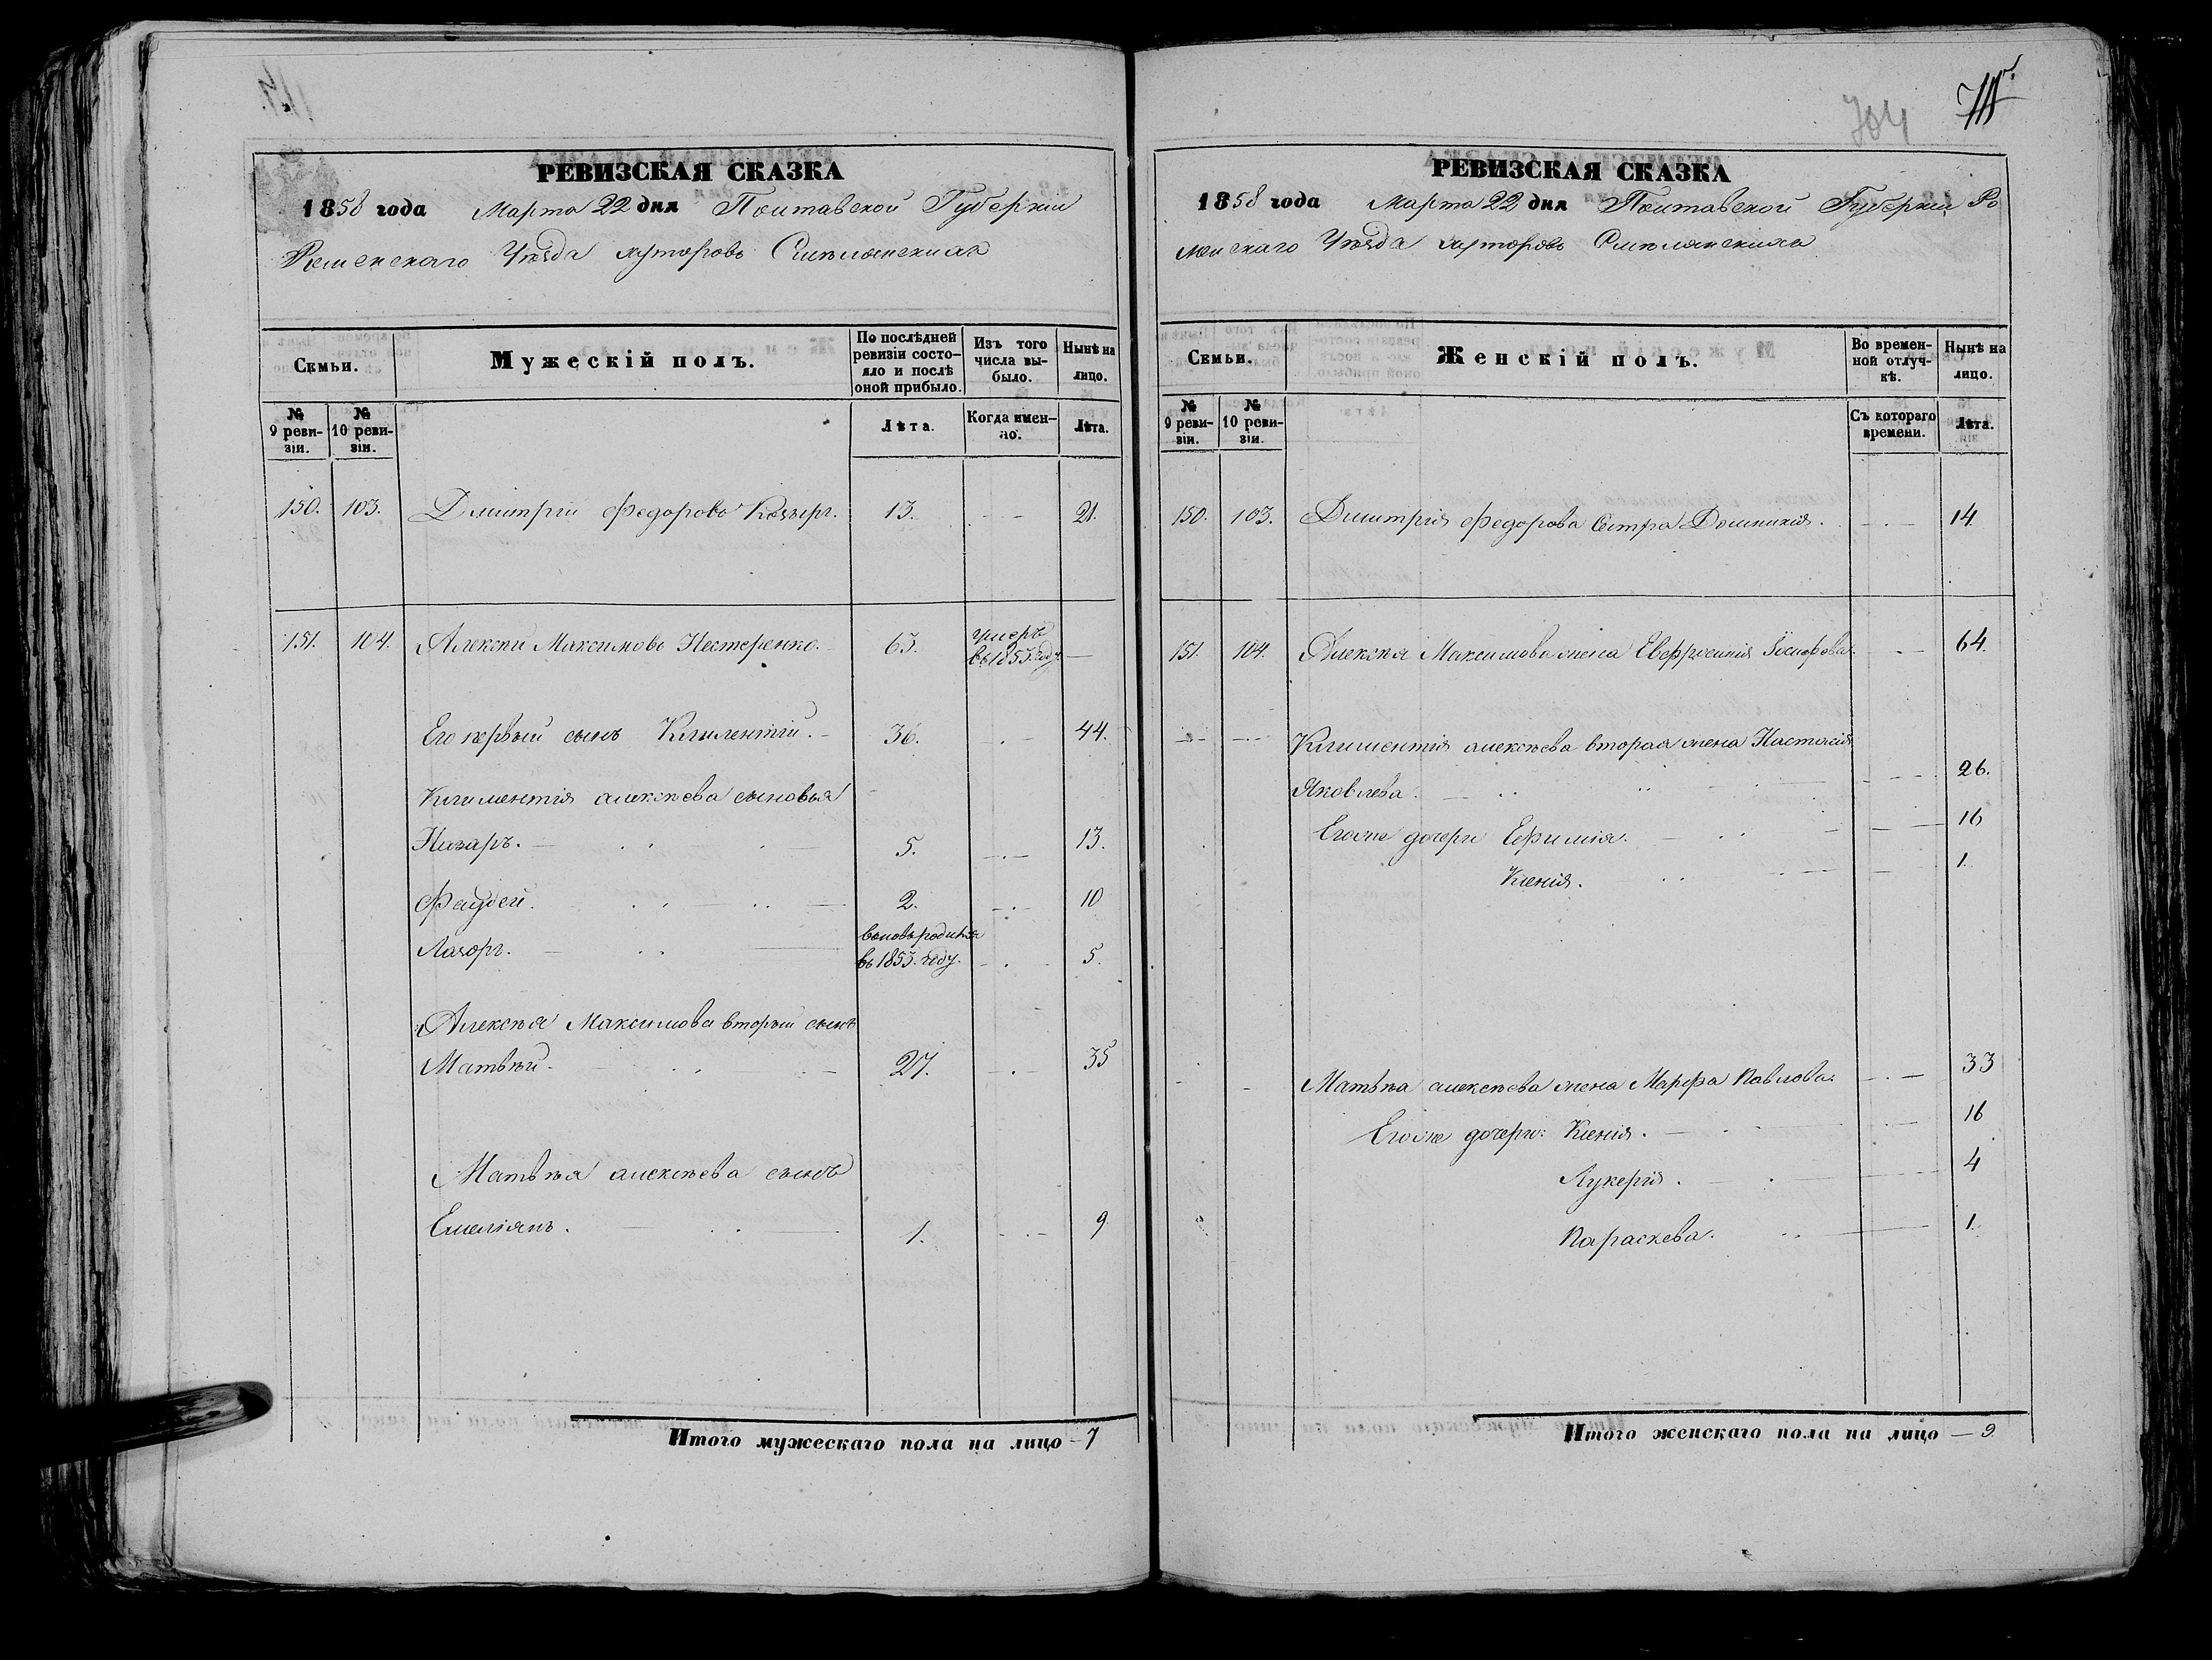 РЕВИЗСКАЯ СКАЗКА
1858 года Марта 22 дня Полтавской Губерніи
Роменскаго Уѣзда хуторовъ Смѣлянскихъ
Семьи. Мужескій полъ. По послѣдней ревизіи состояло и послѣ оной прибыло. Изъ того числа выбыло. Нынѣ на лицо.
№ 9 ревизіи. № 10 ревизіи. Лѣта. Когда именно. Лѣта.
150. 103. Дмитрій Федоровъ 13. 21.
151. 104. Алексѣй Максимовъ Нестеренко. 63. умеръ въ 1853. году.
Его первый сынъ Климентій. 36. 44.
Климентія алексѣева сыновья
Назаръ. 5. 13.
Фаддей. 2. 10
Лазорь. вновь родился въ 1853. году. 5.
Алексѣя Максимова вторый сынъ
Матвѣй. 27. 35
Матвѣя алексѣева сынъ
Емеліянъ. 1. 9.
Итого мужескаго пола на лицо - 7
704
РЕВИЗСКАЯ СКАЗКА
1858 года Марта 22 дня Полтавской Губерніи Ро
менскаго Уѣзда хуторовъ Смѣлянскихъ
Семьи. Женскій полъ. Во временной отлучкѣ. Нынѣ на лицо.
№ 9 ревизіи. № 10 ревизіи. Съ котораго времени. Лѣта.
150. 103. Димитрія Федорова Сестра Домникія. 14.
151. 104. Алексѣя Максимова жена Евфросинія Іосифова. 64.
Климентія алексѣева вторая жена Настасія
Яковлева. 26.
Егоже дочери Ефимія. 16
Ксенія. 1.
Матвѣя алексѣева жена Марфа Павлова. 33
Егоже дочери: Ксенія. 16
Лукерія. 4
Параскева. 1.
Итого женскаго пола на лицо — 9.